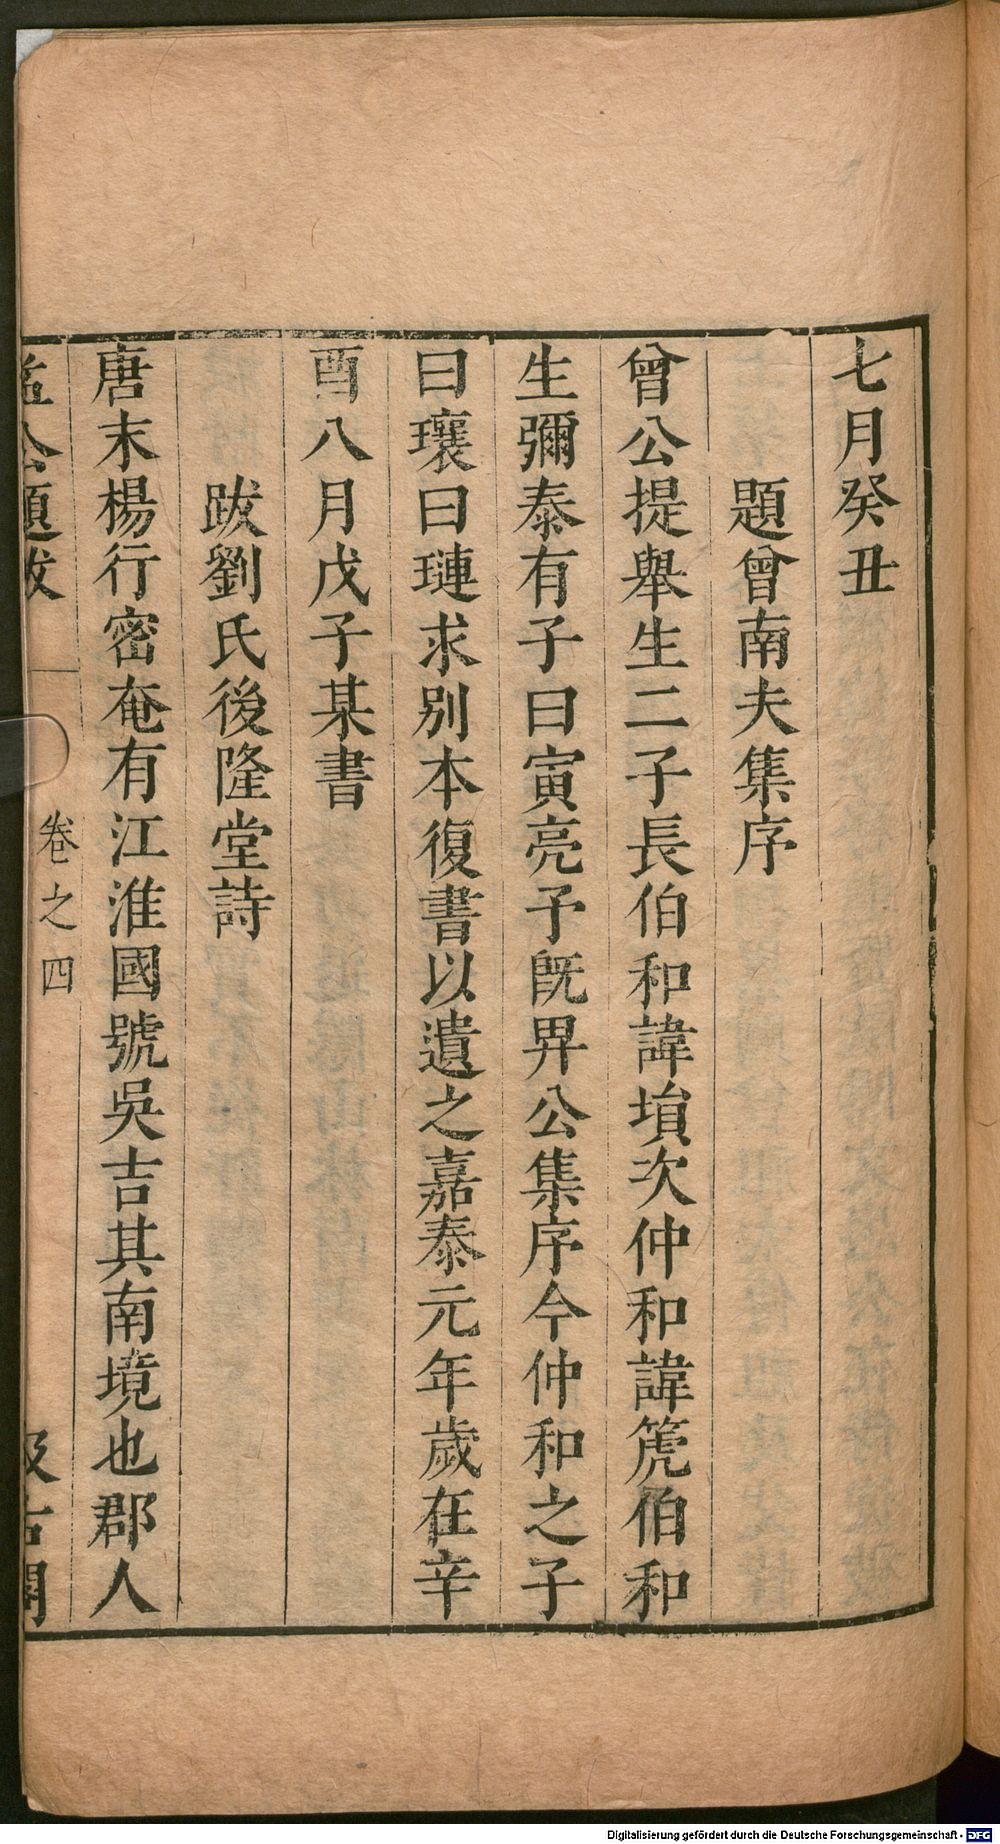 七月癸丑
題曾南夫集序
曾公提舉生二子長伯和諱塤次仲和諱篪伯和
生彌泰有子曰寅亮予旣畀公集序今仲和之子
曰瓖曰璉求別本復書以遺之嘉泰元年歲在辛
酉八月戊子某書
跋劉氏後隆堂詩
唐末楊行密奄有江淮國號吳吉其南境也郡人
益公題跋
卷之四
汲古閣
Digitalisierung gefördert durch die Deutsche Forschungsgemeinschaft - DFG